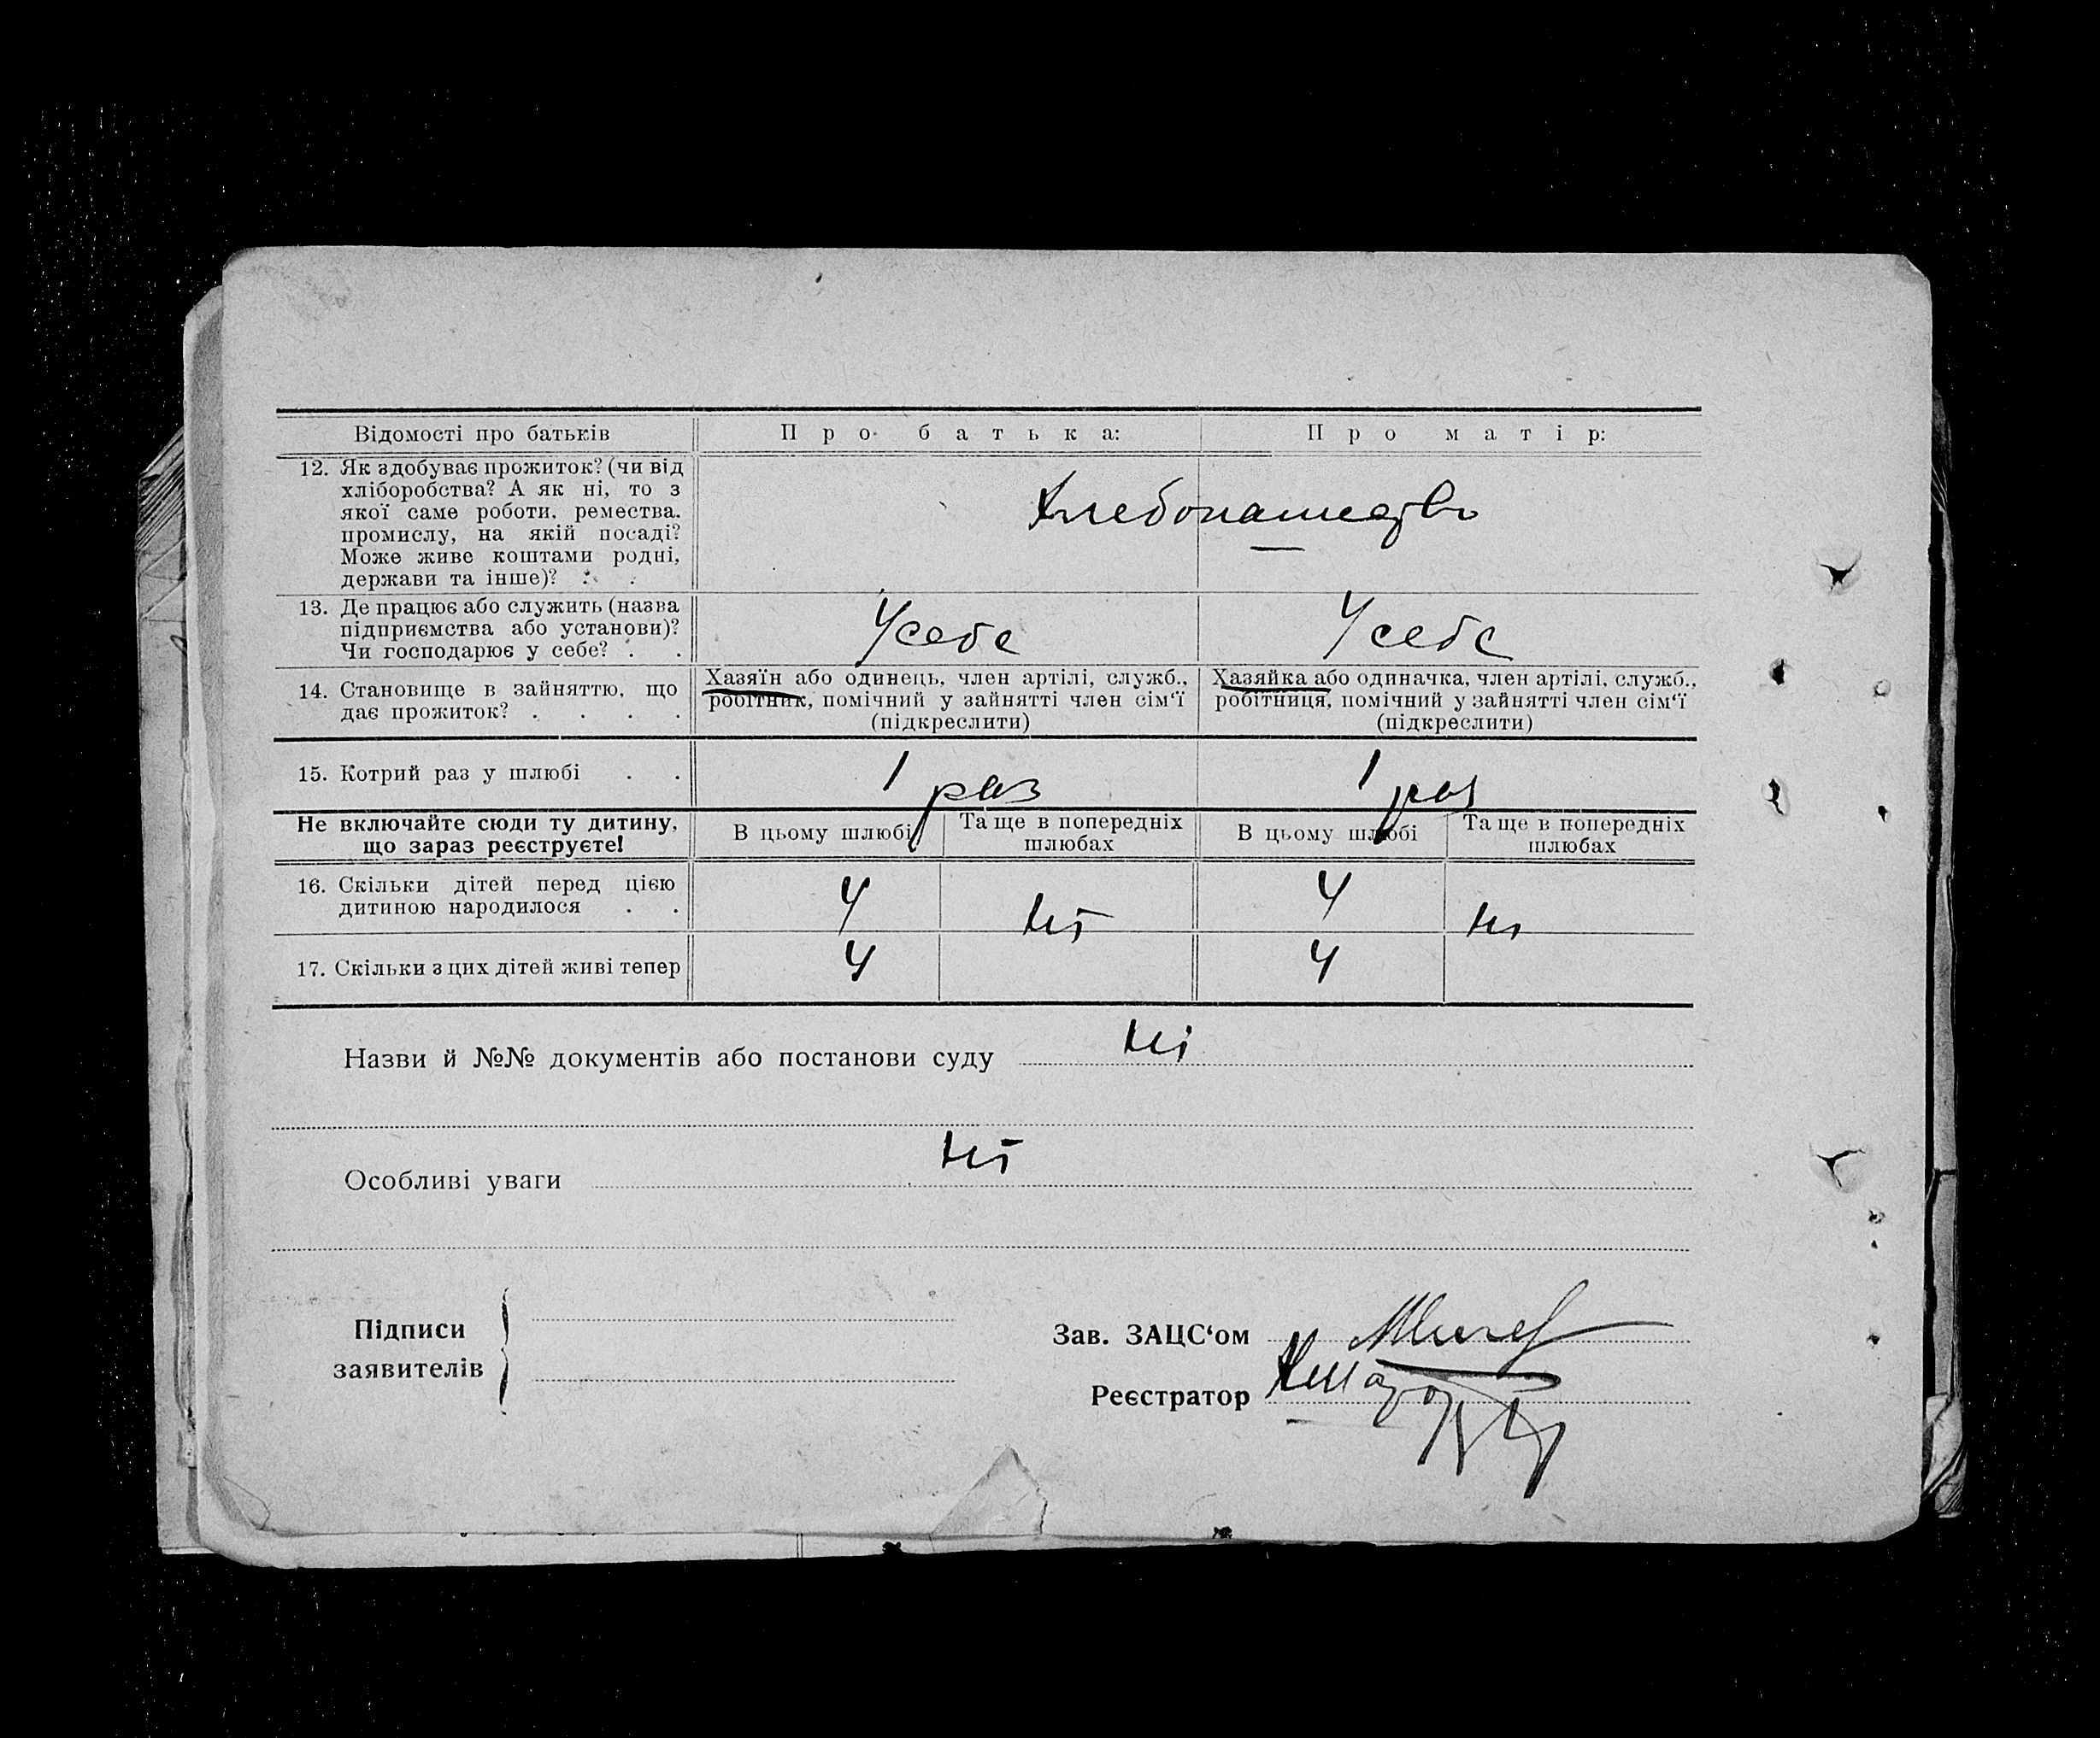 Відомості про батьків
Про батька:
Про матір:
12. Як здобуває прожиток? (чи від
хліборобства? А як ні, то з
якої саме роботи, ремества,
промислу, на якій посаді?
Може живе коштами родні,
держави та інше)? . .
Хлебопашество
13. Де працює або служить (назва
підприємства або установи)?
Чи господарює у себе? . .
У себе
У себе
14. Становище в зайняттю, що
дає прожиток? . . . .
Хазяїн або одинець, член артілі, служб.,
робітник, помічний у зайнятті член сім‘ї
(підкреслити)
Хазяйка або одиначка, член артілі, служб.,
робітниця, помічний у зайнятті член сім‘ї
(підкреслити)
15. Котрий раз у шлюбі . .
1 раз
1 раз
Не включайте сюди ту дитину,
що зараз реєструєте!
В цьому шлюбі
Та ще в попередніх
шлюбах
В цьому шлюбі
Та ще в попередніх
шлюбах
16. Скільки дітей перед цією
дитиною народилося . .
4
Ні
4
Ні
17. Скільки з цих дітей живі тепер
4
4
Назви й №№ документів або постанови суду Ні
Особливі уваги Ні
Підписи
заявителів
Зав. ЗАЦС‘ом
Реєстратор